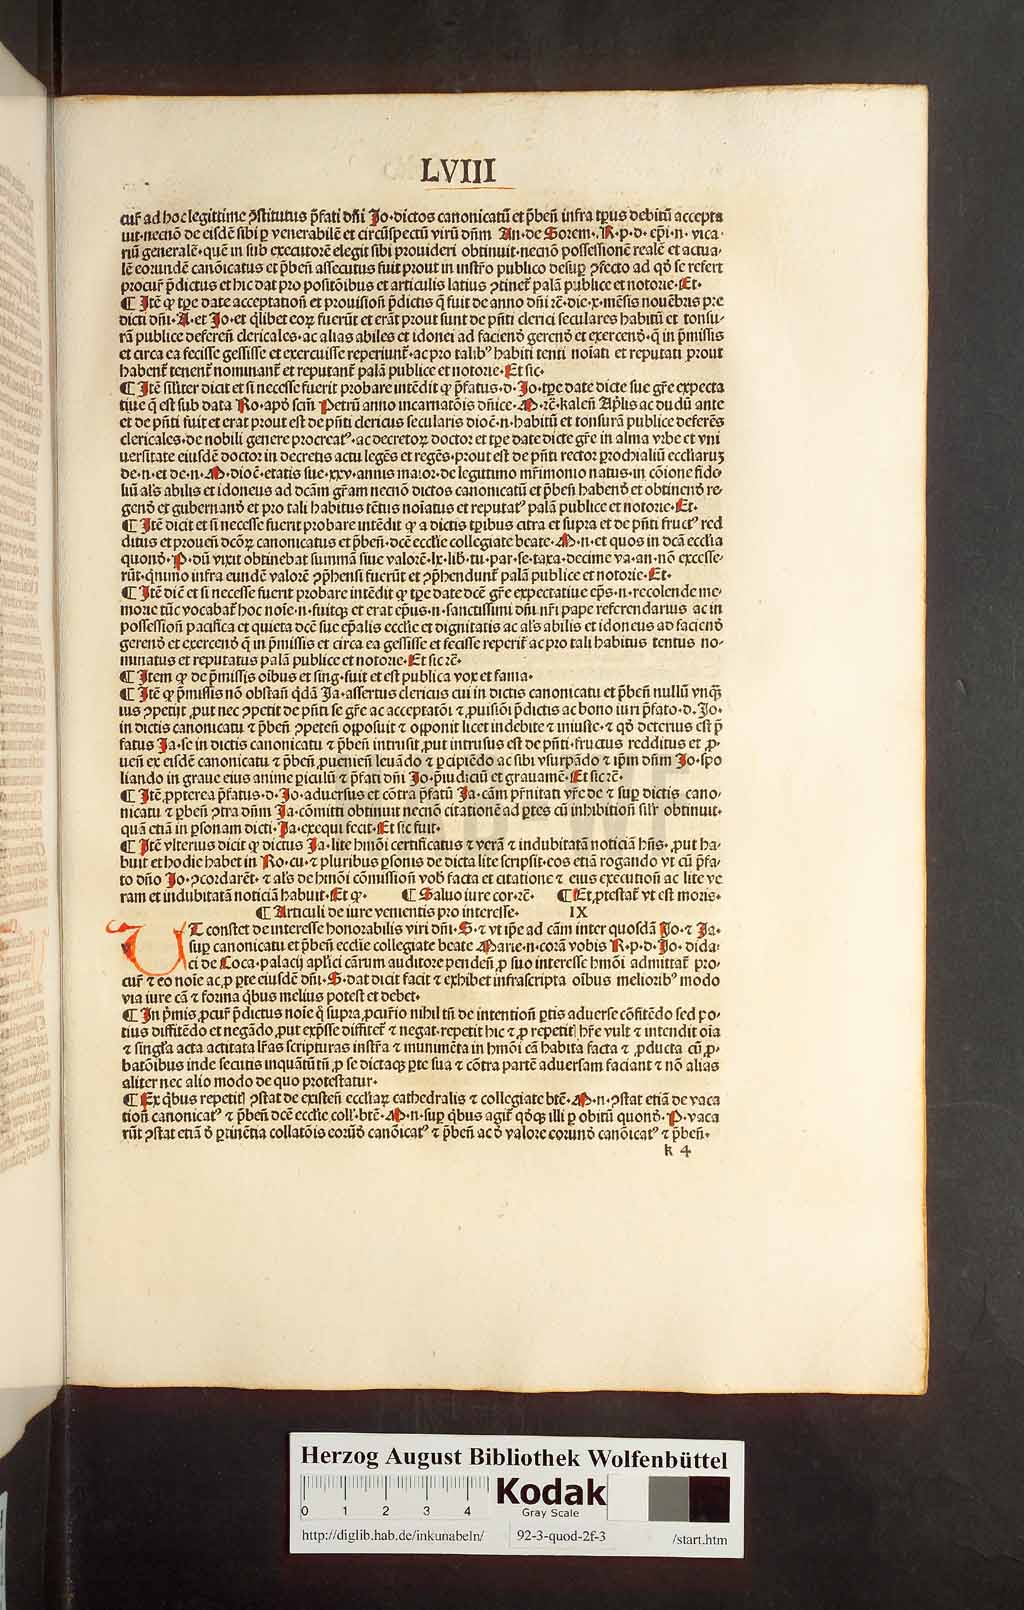 LVIII
cur̃ ad hoc legittime ꝯstitutus p̃fati dñi Jo·dictos canonicatũ et p̃beñ infra tp̱us debitũ accepta
uit·necnõ de eisdẽ sibi ꝑ venerabilẽ et circũspectũ virũ dñm An·de Sorem·R·p·d·ep̃i·n·vica·
riũ generalẽ·quẽ in sub executorẽ elegit sibi prouideri obtinuit·necnõ possessionẽ realẽ et actua·
lẽ eorundẽ canõicatus et p̃beñ assecutus fuit prout in instr̃o publico desuꝑ ꝯfecto ad qđ se refert
procur̃ p̃dictus et hic dat pro positõibus et articulis latius ꝯtinet̃ palã publice et notorie·Et·
¶ Jtẽ ꝙ tꝑe date acceptatioñ et prouisioñ p̃dictis q̃ fuit de anno dñi rẽ·die·x·mẽsis nouẽbris pre
dicti dñi·A·et Jo·et q̃libet eoꝝ fuerũt et erãt prout sunt de pñti clerici seculares habitũ et tonsu·
rã publice defereñ clericales·ac alias abiles et idonei ad facienđ gerenđ et exercenđ·q̃ in p̃missis
et circa ea fecisse gessisse et exercuisse reperiunt̃·ac pro talibꝰ habiti tenti noĩati et reputati prout
habent̃ tenent̃ nominant̃ et reputant̃ palã publice et notorie·Et sic·
¶ Jtẽ sil̃iter dicit et si necesse fuerit probare intẽdit ꝙ p̃fatus·d·Jo·tꝑe date dicte sue gr̃e expecta
tiue q̃ est sub data Ro·apđ scm̃ Petrũ anno incarnatõis dñice·M·rẽ·kaleñ Apl̃is ac du dũ ante
et de pñti fuit et erat prout est de pñti clericus secularis dioc̃·n·habitũ et tonsurã publice deferẽs
clericales·de nobili genere procreatꝰ·ac decretoꝝ doctor et tꝑe date dicte gr̃e in alma vrbe et vni
uersitate eiusdẽ doctor in decretis actu legẽs et regẽs·prout est de pñti rector prochialiũ eccl̃iarꝝ
de·n·et de·n·M·dioc̃·etatis sue·xxv·annis maior·de legittimo mr̃imonio natus·in cõione fide·
liũ al̃s abilis et idoneus ad dcãm gr̃am necnõ dictos canonicatũ et p̃beñ habenđ et obtinenđ re·
genđ et gubernanđ et pro tali habitus tẽtus noĩatus et reputatꝰ palã publice et notorie·Et·
¶ Jtẽ dicit et si necesse fuerit probare intẽdit ꝙ a dictis tꝑibus citra et supra et de pñti fructꝰ red
ditus et proueñ dcõꝝ canonicatus et p̃beñ·dcẽ eccl̃ie collegiate beate·M·n·et quos in dcã eccl̃ia
quonđ·P·dũ vixit obtinebat summã siue valorẽ·lx·lib̃·tu·par·se·taxa·decime va·an·nõ excesse·
rũt·q̃nimo infra eundẽ valorẽ ꝯp̃hensi fuerũt et ꝯp̃hendunt̃ palã publice et notorie·Et·
¶ Jtẽ dic̃ et si necesse fuerit probare intẽdit ꝙ tꝑe date dcẽ gr̃e expectatiue ep̃s·n·recolende me·
morie tũc vocabat̃ hoc noĩe·n·fuitqꝫ et erat ep̃us·n·sanctissimi dñi nr̃i pape referendarius ac in
possessioñ pacifica et quieta dcẽ sue ep̃alis eccl̃ie et dignitatis ac al̃s abilis et idoneus ad facienđ
gerenđ et exercenđ q̃ in p̃missis et circa ea gessisse et fecisse reperit̃ ac pro tali habitus tentus no·
minatus et reputatus palã publice et notorie·Et sic rẽ·
¶ Jtem ꝙ de p̃missis oĩbus et sing·fuit et est publica vox et fama·
¶ Jtẽ ꝙ p̃missis nõ obstañ q̃dã Ja·assertus clericus cui in dictis canonicatu et p̃beñ nullũ vnqꝫ
ius ꝯpetijt ꝓut nec ꝯpetit de pñti se gr̃e ac acceptatõi ⁊ ꝓuisiõi p̃dictis ac bono iuri p̃fato·d·Jo·
in dictis canonicatu ⁊ p̃beñ ꝯpeteñ opposuit ⁊ opponit licet indebite ⁊ iniuste·⁊ qđ deterius est p̃
fatus Ja·se in dictis canonicatu ⁊ p̃beñ intrusit ꝓut intrusus est de pñti·fructus redditus et ꝓ·
ueñ ex eisdẽ canonicatu ⁊ p̃beñ ꝓuenieñ leuãdo ⁊ ꝑcipiẽdo ac sibi vsurpãdo ⁊ ip̃m dñm Jo·spo
liando in graue eius anime ꝑiculũ ⁊ p̃fati dñi Jo·p̃iudiciũ et grauamẽ·Et sic rẽ·
¶ Jtẽ ꝓpterea p̃fatus·d·Jo·aduersus et cõtra p̃fatũ Ja·cãm p̃ñitati vr̃e de ⁊ suꝑ dictis cano·
nicatu ⁊ p̃beñ ꝯtra dñm Ja·cõmitti obtinuit necnõ citationẽ ad ꝑtes cũ inhibitioñ sil̃r obtinuit·
quã etiã in ꝑsonam dicti·Ja·exequi fecit·Et sic fuit·
¶ Jtẽ vlterius dicit ꝙ dictus Ja·lite hmõi certificatus ⁊ verã ⁊ indubitatã noticiã hñs·ꝓut ha·
buit et hodie habet in Ro·cu·⁊ pluribus ꝑsonis de dicta lite scripsit·eos etiã rogando vt cũ p̃fa·
to dño Jo·ꝯcordarẽt·⁊ al̃s de hmõi cõmissioñ vob̃ facta et citatione ⁊ eius executioñ ac lite ve
ram et indubitatã noticiã habuit·Et ꝙ· ¶ Saluo iure cor·rẽ· ¶ Et ꝓtestat̃ vt est moris·
¶ Articuli de iure venientis pro interesse· IX
UT constet de interesse honorabilis viri dñi·S·⁊ vt ip̃e ad cãm inter quosdã Jo·⁊ Ja·
suꝑ canonicatu et p̃beñ eccl̃ie collegiate beate Marie·n·corã vobis R·p·d·Jo·dida·
ci de Coca·palacij apl̃ici cãrum auditore pendeñ ꝓ suo interesse hmõi admittat̃ pro·
cur̃ ⁊ eo noĩe ac ꝓ ꝑte eiusdẽ dñi·S·dat dicit facit ⁊ exhibet infrascripta oĩbus melioribꝰ modo
via iure cã ⁊ forma q̃bus melius potest et debet·
¶ Jn p̃mis ꝓcur̃ p̃dictus noĩe q̃ supra ꝓcur̃io nihil tñ de intentioñ ꝑtis aduerse cõfitẽdo sed po·
tius diffitẽdo et negãdo ꝓut exp̃sse diffitet̃ ⁊ negat·repetit hic ⁊ ꝓ repetit̃ hr̃e vult ⁊ intendit oĩa
⁊ singl̃a acta actitata lr̃as scripturas instr̃a ⁊ munimẽta in hmõi cã habita facta ⁊ ꝓducta cũ ꝓ·
batõibus inde secutis inquãtũ tñ ꝓ se dictaqꝫ ꝑte sua ⁊ cõtra partẽ aduersam faciant ⁊ nõ alias
aliter nec alio modo de quo protestatur·
¶ Ex q̃bus repetit̃ ꝯstat de existeñ eccl̃iaꝝ cathedralis ⁊ collegiate btẽ·M·n·ꝯstat etiã de vaca
tioñ canonicatꝰ ⁊ p̃beñ dcẽ eccl̃ie coll̃·btẽ·M·n·suꝑ q̃bus agit̃ qđqꝫ illi ꝑ obitũ quonđ·P·vaca
rũt ꝯstat etiã đ ꝑtinẽtia collatõis eorũđ canõicatꝰ ⁊ p̃beñ ac đ valore eorunđ canõicatꝰ ⁊ p̃beñ·
k 4
Herzog August Bibliothek Wolfenbüttel
0 1 2 3 4
Kodak
Gray Scale
http://diglib.hab.de/inkunabeln/ 92-3-quod-2f-3 /start.htm